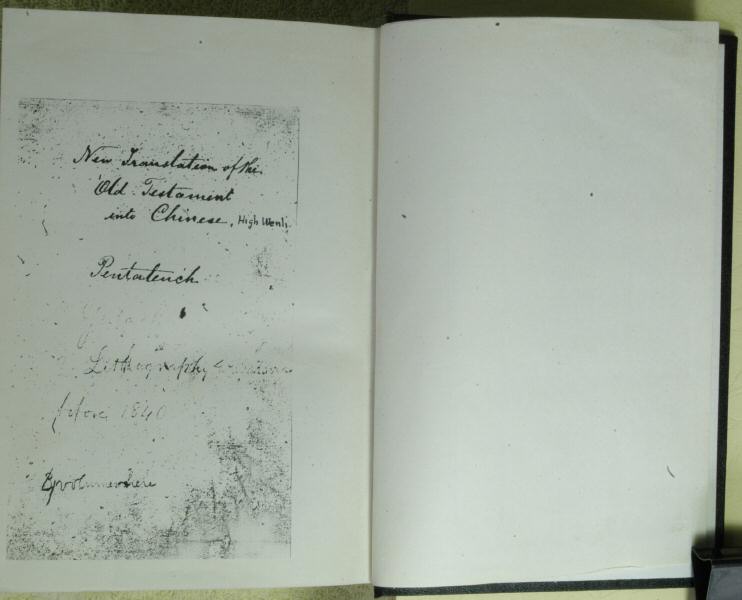 New Translation of the
Old Testament
into Chinese, High Wenli
Pentateuch
Lithography
before 1840
volumes here